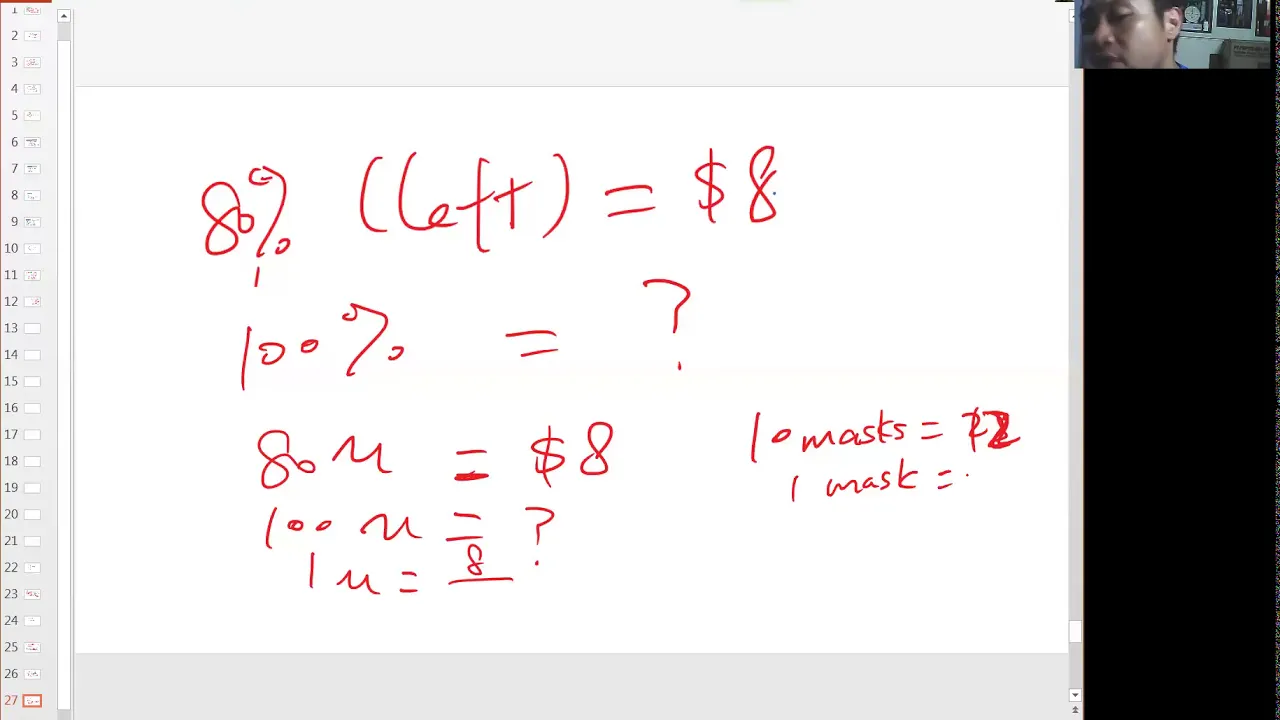 1
2
3
4
5
6
7
8
9
10
11
12
13
14
15
16
17
18
19
20
21
22
23
24
25
26
27
80% (left) = $8
100% = ?
80 u = $8
100 u = ?
1 u = 8
10 masks =
1 mask =